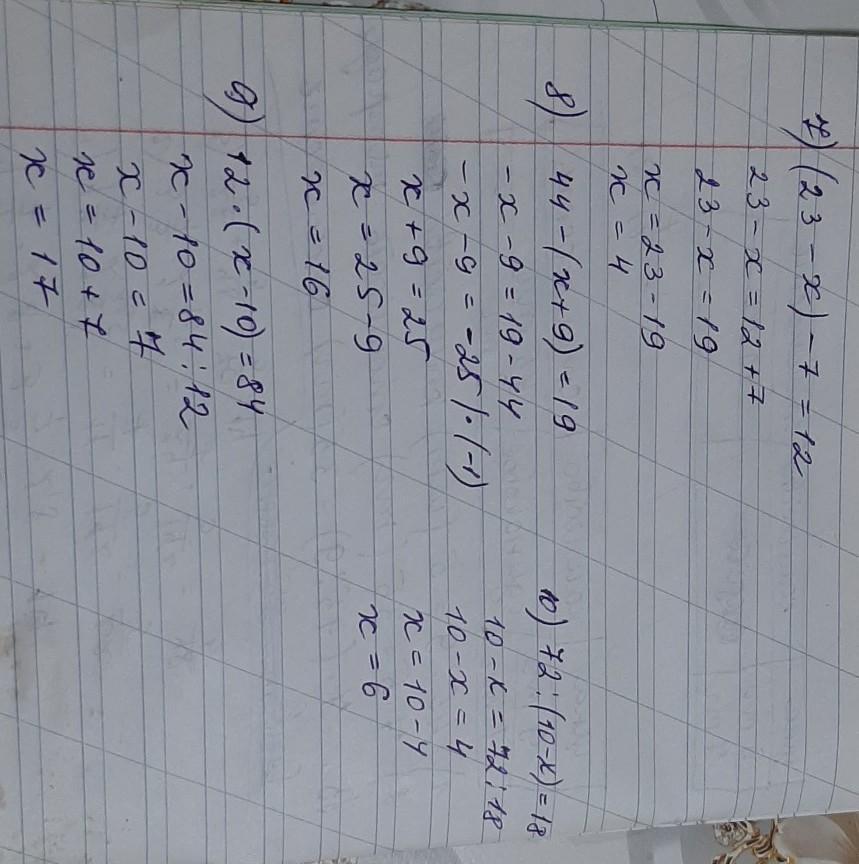 7) (23 - x) - 7 = 12
23 - x = 12 + 7
23 - x = 19
x = 23 - 19
x = 4
8) 44 - (x + 9) = 19
- x - 9 = 19 - 44
- x - 9 = -25 | · (-1)
x + 9 = 25
x = 25 - 9
x = 16
9) 12 · (x - 10) = 84
x - 10 = 84 : 12
x - 10 = 7
x = 10 + 7
x = 17
10) 72 : (10 - x) = 18
10 - x = 72 : 18
10 - x = 4
x = 10 - 4
x = 6